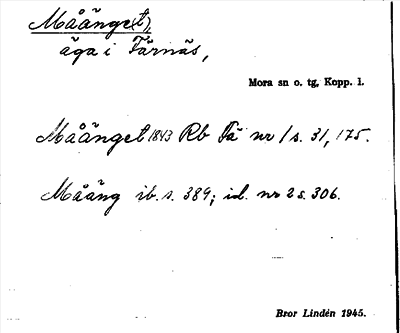 Måänge(t),
äga i Färnäs,
Mora sn o. tg, Kopp. l.
Måänget 1843 Rb Fä nr 1 s. 31, 175.
Måäng ib. s. 389; id. nr 2 s. 306.
Bror Lindén 1945.